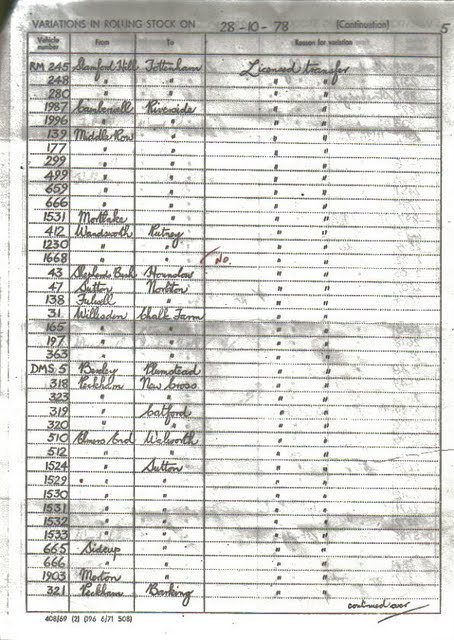 VARIATIONS IN ROLLING STOCK ON 28-10-78 (Continuation) 5
Vehicle number From To Reason for variation
RM 245 Stamford Hill Tottenham Licensed transfer
248 " " " "
280 " " " "
1987 Camberwell Riverside " "
1996 " " " "
139 Middle Row " " "
177 " " " "
299 " " " "
499 " " " "
659 " " " "
666 " " " "
1531 Mortlake " " "
412 Wandsworth Putney " "
1230 " " " "
1668 " " No. " "
43 Shepherds Bush Hounslow " "
47 Sutton Norbiton " "
138 Fulwell " " "
31 Willesden Chalk Farm " "
165 " " " "
197 " " " "
363 " " " "
DMS 5 Bexley Plumstead " "
318 Peckham New Cross " "
323 " " " "
319 " Catford " "
320 " " " "
510 Elmers End Walworth " "
512 " " " "
1524 " Sutton " "
1529 " " " "
1530 " " " "
1531 " " " "
1532 " " " "
1533 " " " "
665 Sidcup " " "
666 " " " "
1903 Merton " " "
321 Peckham Barking " "
continued over
408/69 (2) (196 6/71 508)